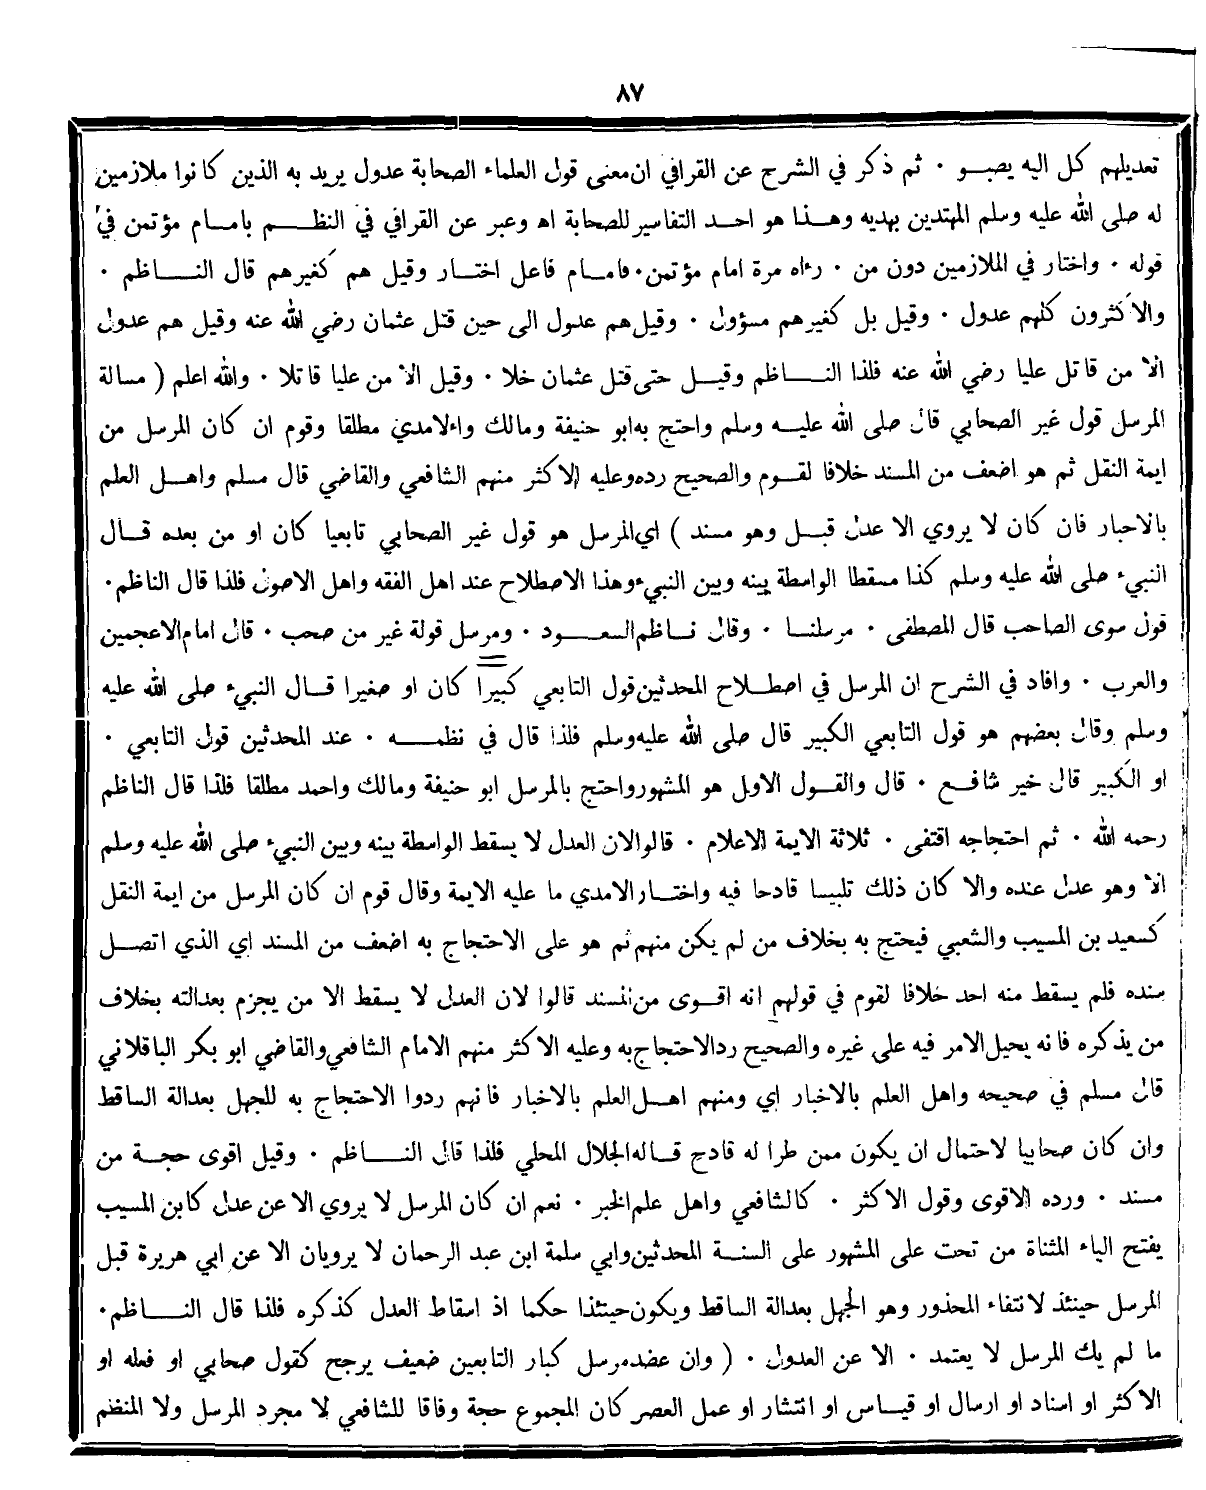 ٨٧
تعديلهم كل اليه يصبــو ٠ ثم ذكر في الشرح عن القرافي ان معنى قول العلماء الصحابة عدول يريد به الذين كانوا ملازمين
له صلى الله عليه وسلم المهتدين بهديه وهــذا هو احـد التفاسير للصحابة اه وعبر عن القرافي في النظـــم بامـام مؤتمن في
قوله ٠ واختار في الملازمين دون من ٠ رءاه مرة امام مؤتمن ٠ فامـام فاعل اختـار وقيل هم كغيرهم قال النـــاظم ٠
والاكثرون كلهم عدول ٠ وقيل بل كغيرهم مسؤول ٠ وقيل هم عدول الى حين قتل عثمان رضي الله عنه وقيل هم عدول
الا من قاتل عليا رضي الله عنه فلذا النــاظم وقيـل حتى قتل عثمان خلا ٠ وقيل الا من عليا قاتلا ٠ والله اعلم ( مسالة
المرسل قول غير الصحابي قال صلى الله عليــه وسلم واحتج به ابو حنيفة ومالك واءلامدي مطلقا وقوم ان كان المرسل من
ايمة النقل ثم هو اضعف من المسند خلافا لقــوم والصحيح رده وعليه الاكثر منهم الشافعي والقاضي قال مسلم واهـل العلم
بالاخبار فان كان لا يروي الا عدل قبـل وهو مسند ) اي المرسل هو قول غير الصحابي تابعيا كان او من بعده قـال
النبيء صلى الله عليه وسلم كذا مسقطا الواسطة بينه وبين النبيء وهذا الاصطلاح عند اهل الفقه واهل الاصول فلذا قال الناظم ٠
قول سوى الصاحب قال المصطفى ٠ مرسلنـا ٠ وقال نـاظم السعــود ٠ ومرسل قولة غير من صحب ٠ قال امام الاعجمين
والعرب ٠ وافاد في الشرح ان المرسل في اصطـلاح المحدثين قول التابعي كبيرا كان او صغيرا قـال النبيء صلى الله عليه
وسلم وقال بعضهم هو قول التابعي الكبير قال صلى الله عليه وسلم فلذا قال في نظمــه ٠ عند المحدثين قول التابعي ٠
او الكبير قال خير شافـع ٠ قال والقـول الاول هو المشهور واحتج بالمرسل ابو حنيفة ومالك واحمد مطلقا فلذا قال الناظم
رحمه الله ٠ ثم احتجاجه اقتفى ٠ ثلاثة الايمة الاعلام ٠ قالوا لان العدل لا يسقط الواسطة بينه وبين النبيء صلى الله عليه وسلم
الا وهو عدل عنده والا كان ذلك تلبيسا قادحا فيه واختـار الامدي ما عليه الايمة وقال قوم ان كان المرسل من ايمة النقل
كسعيد بن المسيب والشعبي فيحتج به بخلاف من لم يكن منهم ثم هو على الاحتجاج به اضعف من المسند اي الذي اتصــل
سنده فلم يسقط منه احد خلافا لقوم في قولهم انه اقـوى من المسند قالوا لان العدل لا يسقط الا من يجزم بعدالته بخلاف
من يذكره فانه يحيل الامر فيه على غيره والصحيح رد الاحتجاج به وعليه الاكثر منهم الامام الشافعي والقاضي ابو بكر الباقلاني
قال مسلم في صحيحه واهل العلم بالاخبار اي ومنهم اهـل العلم بالاخبار فانهم ردوا الاحتجاج به للجهل بعدالة الساقط
وان كان صحابيا لاحتمال ان يكون ممن طرا له قادح قـاله الجلال المحلي فلذا قال النـــاظم ٠ وقيل اقوى حجـة من
مسند ٠ ورده الاقوى وقول الاكثر ٠ كالشافعي واهل علم الخبر ٠ نعم ان كان المرسل لا يروي الا عن عدل كابن المسيب
بفتح الياء المثناة من تحت على المشهور على السنـة المحدثين وابي سلمة ابن عبد الرحمان لا يرويان الا عن ابي هريرة قبل
المرسل حينئذ لانتفاء المحذور وهو الجهل بعدالة الساقط ويكون حينئذا حكما اذ اسقاط العدل كذكره فلذا قال النــاظم ٠
ما لم يك المرسل لا يعتمد ٠ الا عن العدول ٠ ( وان عضد مرسل كبار التابعين ضعيف يرجح كقول صحابي او فعله او
الاكثر او اسناد او ارسال او قيـاس او انتشار او عمل العصر كان المجموع حجة وفاقا للشافعي لا مجرد المرسل ولا المنظم